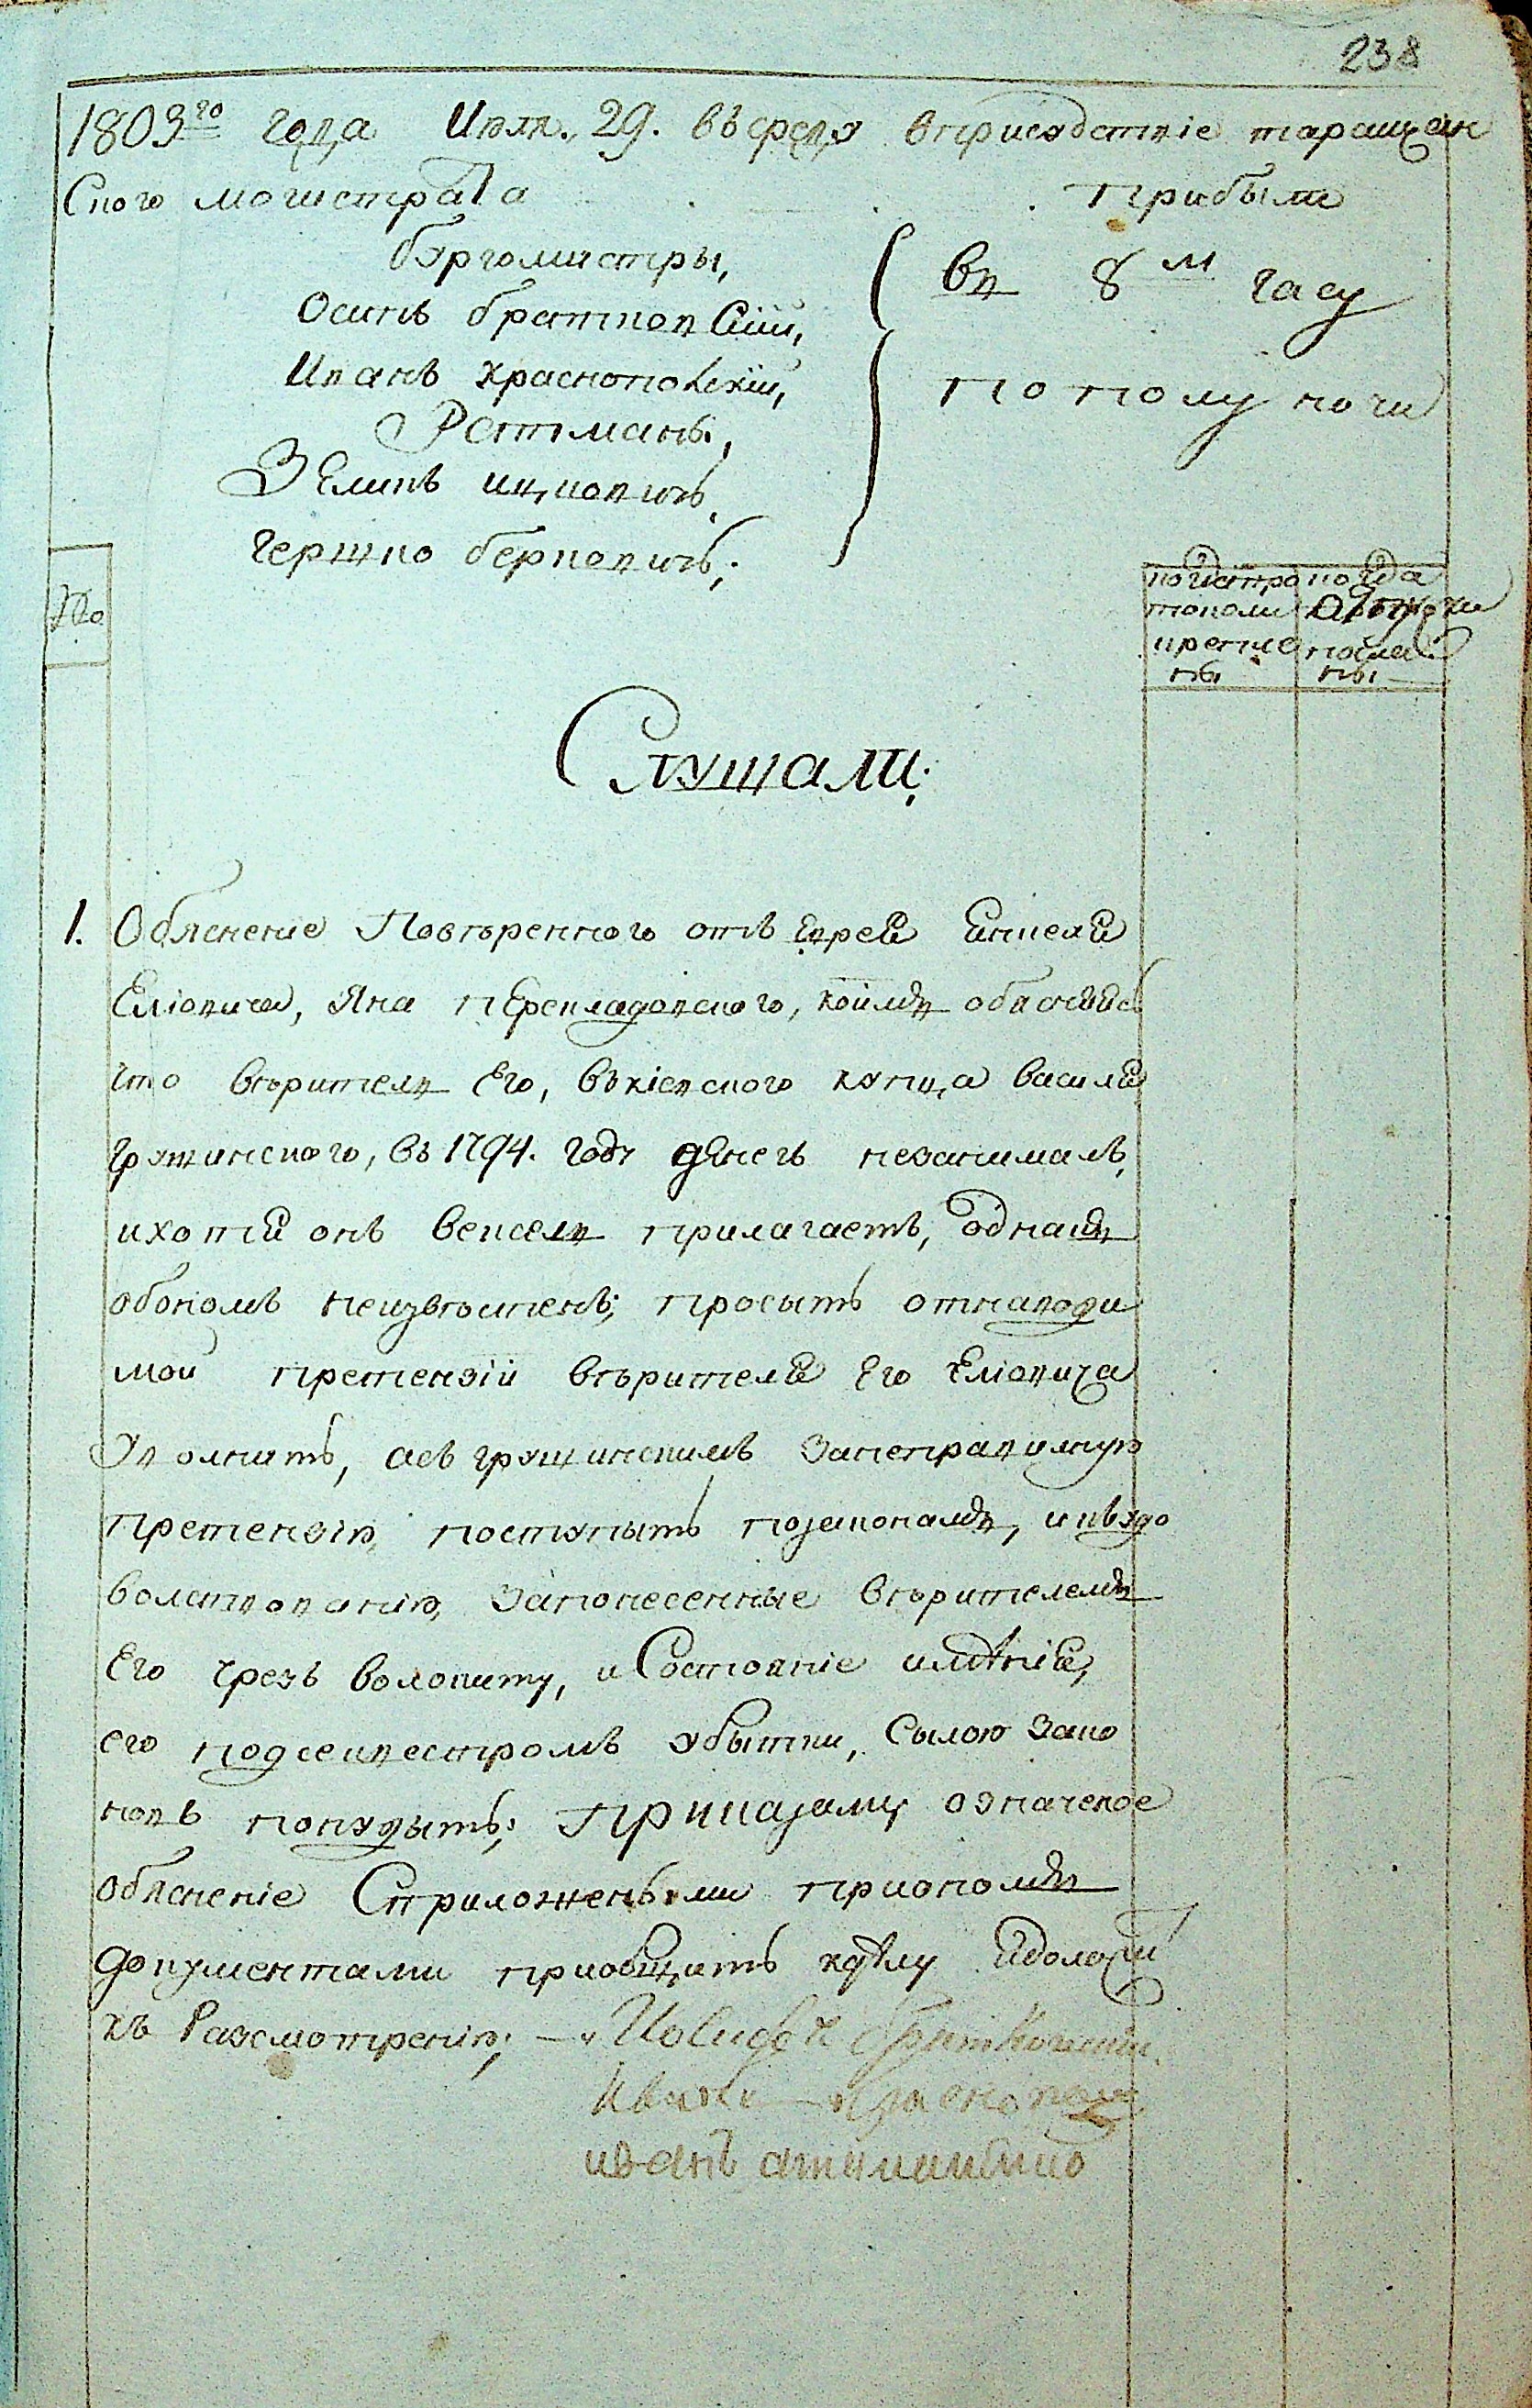 238
1803го года Июля 29. въ среду вприсудствіе таращан
ского магистрата прибыли
бургомистры,
Осипъ братковскій,
Иванъ Краснополскій,
Ратманы,
Зеликъ ицковичъ,
гершко берковичъ;
въ 8м часу
пополуночи
№
слушали;
1. Обяснение Повѣренного отъ еврея
Еліовича, Яна перекладовского, коимъ обясняясь
что вѣритель его, въ кіевского купца василия
грушинского, въ 1794. году денегъ незанималъ,
ихотя онъ вексель прилагаетъ, однакъ
обономъ неизвѣстенъ; просытъ отнаводи
мой претензіи вѣрителя его еліовича
уволнить, асъ грушинскимъ занеправилную
претензію, поступыть позаконамъ, и въ удо
волствованію, запонесенные вѣрителемъ
его чрезъ волокиту, и Состояніе имѣнія,
его подсеквестромъ убытки, Сылою зако
новъ понудыть; Приказали означеное
обясненіе Сприложеными приономъ
документами приобщить кдѣлу идоложи
къ Разсмотренію;
иванъ